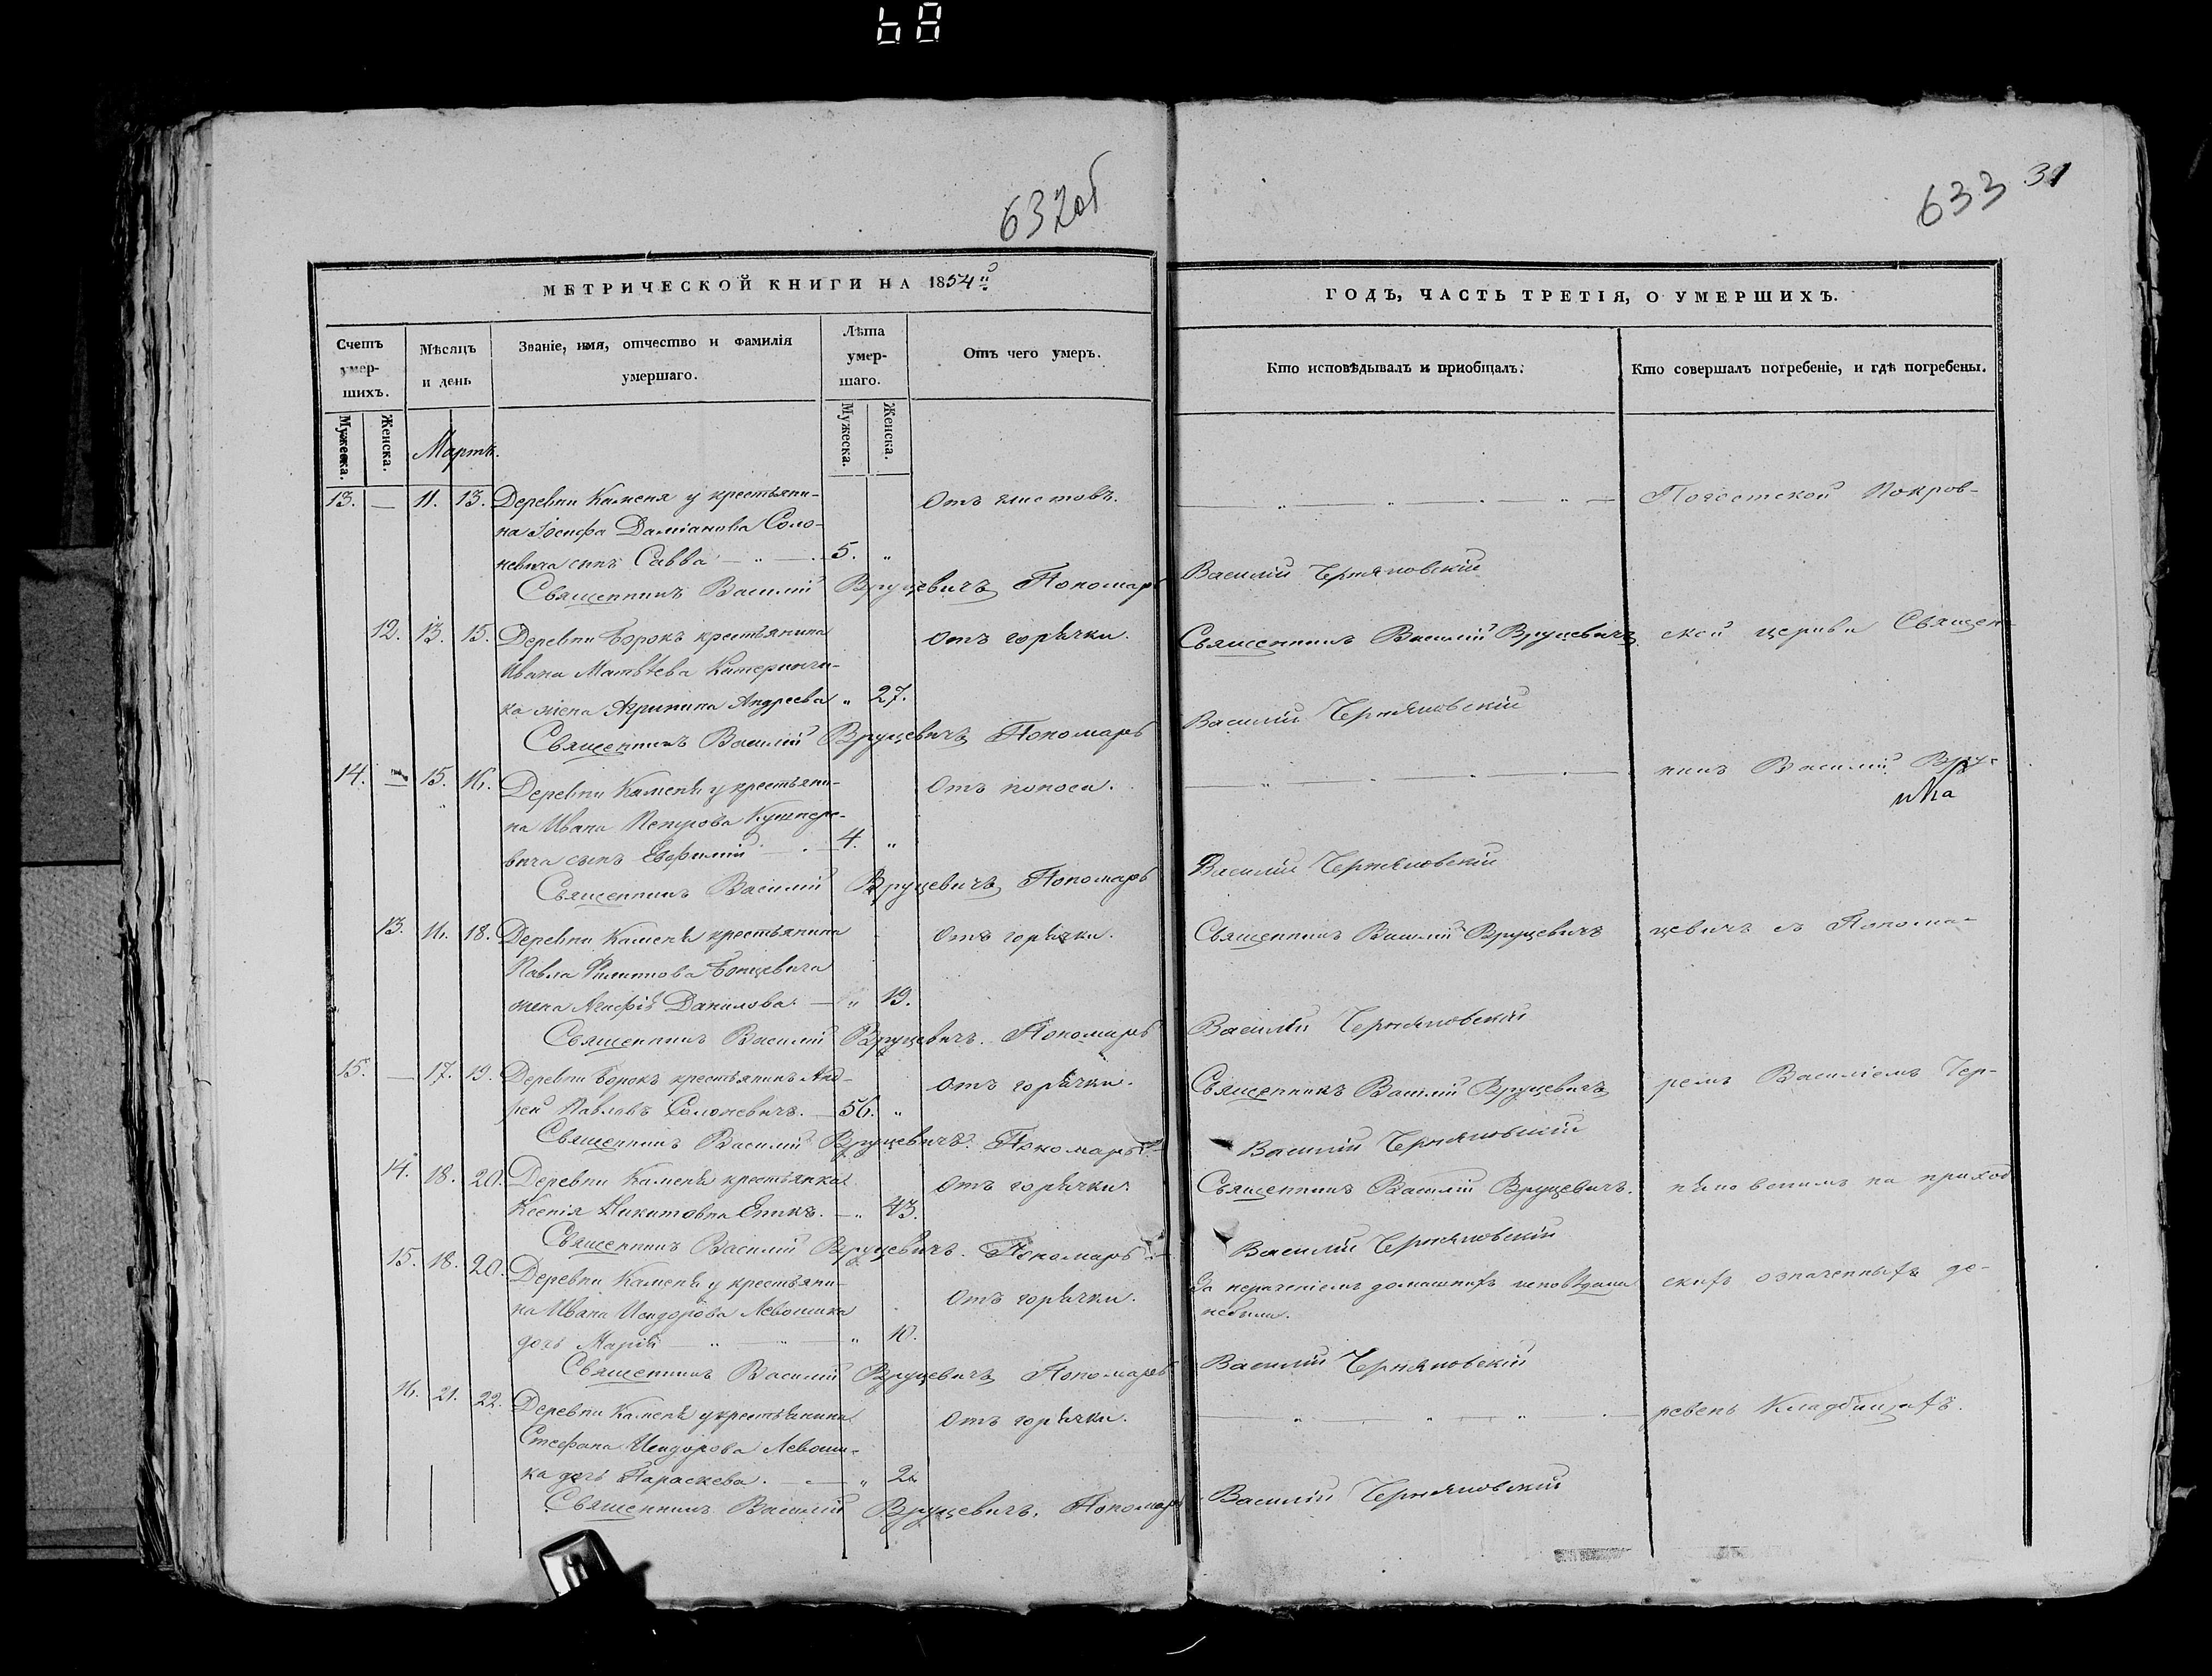 68
632об
633 31
МЕТРИЧЕСКОЙ КНИГИ НА 1854й
ГОДЪ, ЧАСТЬ ТРЕТІЯ, О УМЕРШИХЪ.
Счетъ умер-шихъ.
Мѣсяцъ и день
Званіе, имя, отчество и фамилія умершаго.
Лѣта умер-шаго.
Отъ чего умеръ.
Кто исповѣдывалъ и пріобщалъ.
Кто совершалъ погребеніе, и гдѣ погребены.
Мужеска. Женска.
Мужеска. Женска.
Мартъ.
13. — 11. 13. Деревни Каменя у крестьяни-
на Іосифа Даміанова Соло-
невича сынъ Савва — 5. „
Отъ глистовъ.
Погостской Покров-
Священникъ Василій Вруцевичъ Пономарь Василій Черняковскій
12. 13. 15. Деревни Борокъ крестьянина
Ивана Матвѣева Катеринчи-
ка жена Агрипина Андреева „ 27.
Отъ горячки.
Священникъ Василій Вруцевичъ
ской церкви Священ-
Священникъ Василій Вруцевичъ Пономарь Василій Черняковскій
14. — 15. 16. Деревни Каменя у крестьяни-
на Ивана Петрова
вича сынъ Евфимій 4. „
Отъ поноса.
никъ Василій Вру-
Священникъ Василій Вруцевичъ Пономарь Василій Черняковскій
13. 16. 18. Деревни Каменя крестьянина
Павла Филипова
жена Агафія Данилова — „ 19.
Отъ горячки.
Священникъ Василій Вруцевичъ
цевичъ съ Понома-
Священникъ Василій Вруцевичъ. Пономарь Василій Черняковскій
15. — 17. 19. Деревни Борокъ крестьянинъ Анд-
рей Павловъ Солоневичъ. — 56. „
Отъ горячки.
Священникъ Василій Вруцевичъ
ремъ Василіемъ Чер-
Священникъ Василій Вруцевичъ. Пономарь Василій Черняковскій
14. 18. 20. Деревни Каменя крестьянка
Ксенія Никитовна — „ 43.
Отъ горячки.
Священникъ Василій Вруцевичъ.
няковскимъ на приход
Священникъ Василій Вруцевичъ. Пономарь Василій Черняковскій
15. 18. 20. Деревни Каменя у крестьяни-
на Ивана Исидорова Левошика
дочь Марія — „ 10.
Отъ горячки.
За нераченіемъ домашнихъ исповѣдана
небыла.
скихъ означенныхъ де-
Священникъ Василій Вруцевичъ Пономарь Василій Черняковскій
16. 21. 22. Деревни Каменя у крестьянина
Стефана Исидорова Левоши-
ка дочь Параскева. — „ 2.
Отъ горячки.
ревень Кладбищахъ.
Священникъ Василій Вруцевичъ. Пономарь Василій Черняковскій